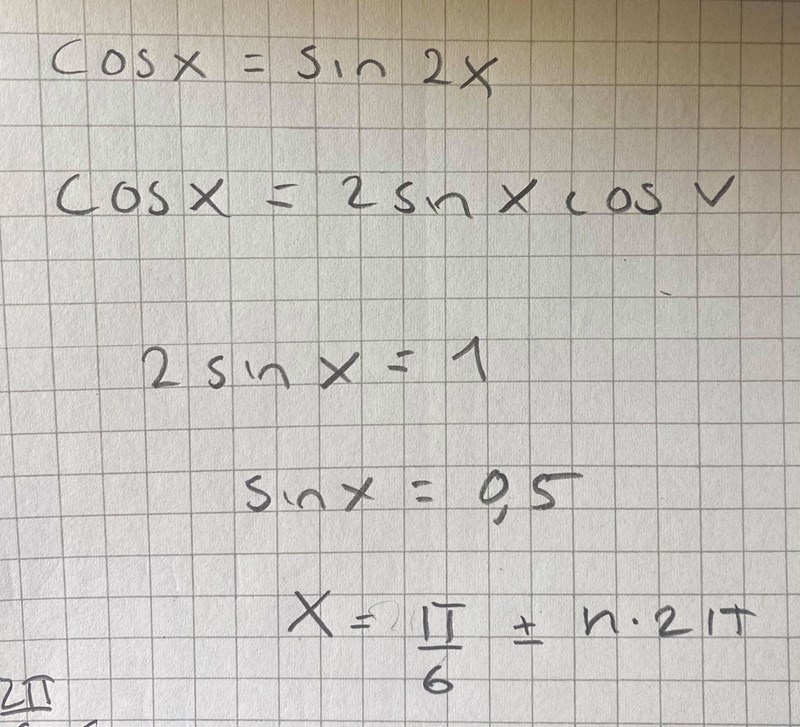 cos x = sin 2x
cos x = 2 sin x cos v
2 sin x = 1
sin x = 0,5
x = π/6 ± n · 2π
2π